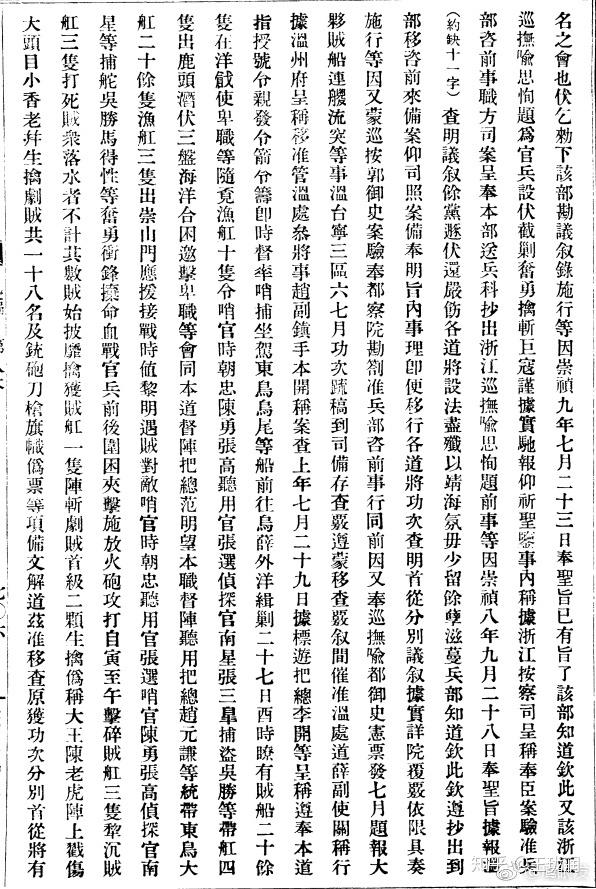 名之會也伏乞勅下該部勘議叙錄施行等因崇禎九年七月二十三日奉聖旨已有旨了該部知道欽此又該浙江
巡撫喩思恂題爲官兵設伏截剿奮勇擒斬巨寇謹據實馳報仰祈聖鑒事內稱據浙江按察司呈稱奉臣案驗准兵
部咨前事職方司案呈奉本部送兵科抄出浙江巡撫喩思恂題前事等因崇禎八年九月二十八日奉聖旨據報
(約缺十一字)查明議叙餘黨遯伏還嚴飭各道將設法盡殲以靖海氛毋少留餘孽滋蔓兵部知道欽此欽遵抄出到
部移咨前來備案仰司照案備奉明旨內事理卽便移行各道將功次查明首從分別議叙據實詳院覆覈依限具奏
施行等因又蒙巡按郭御史案驗奉都察院勘劄准兵部咨前事行同前因又奉巡撫喩都御史憲票發七月題報大
夥賊船連䑸流突等事溫台寧三區六七月功次疏稿到司備存查覈遵蒙移查覈叙間催准溫處道薛副使關稱行
據溫州府呈稱移准管溫處叅將事趙副鎮手本開稱案查上年七月二十九日據標遊把總李開等呈稱遵奉本道
指授號令親發令箭令籌卽時督率哨捕坐駕東鳥鳥尾等船前往烏薛外洋緝剿二十七日酉時瞭有賊船二十餘
隻在洋戧使卑職等隨覓漁舡十隻令哨官時朝忠陳勇張高聽用官張選偵探官南星張三捕盜吳勝等帶舡四
隻出鹿頭潛伏三盤海洋合困邀擊卑職等會同本道督陣把總范明望本職督陣聽用把總趙元謙等統帶東鳥大
舡二十餘隻漁舡三隻出崇山門應援接戰時値黎明遇賊對敵哨官時朝忠聽用官張選哨官陳勇張高偵探官南
星等捕舵吳勝馬得性等奮勇衝鋒命血戰官兵前後圍困夾擊施放火砲攻打自寅至午擊碎賊舡三隻犂沉賊
舡三隻打死賊衆落水者不計其數賊始披靡擒獲賊舡一隻陣斬劇賊首級二顆生擒僞稱大王陳老虎陣上戳傷
大頭目小香老幷生擒劇賊共一十八名及銃砲刀槍旗幟僞票等項備文解道玆准移查原獲功次分別首從將有
知乎